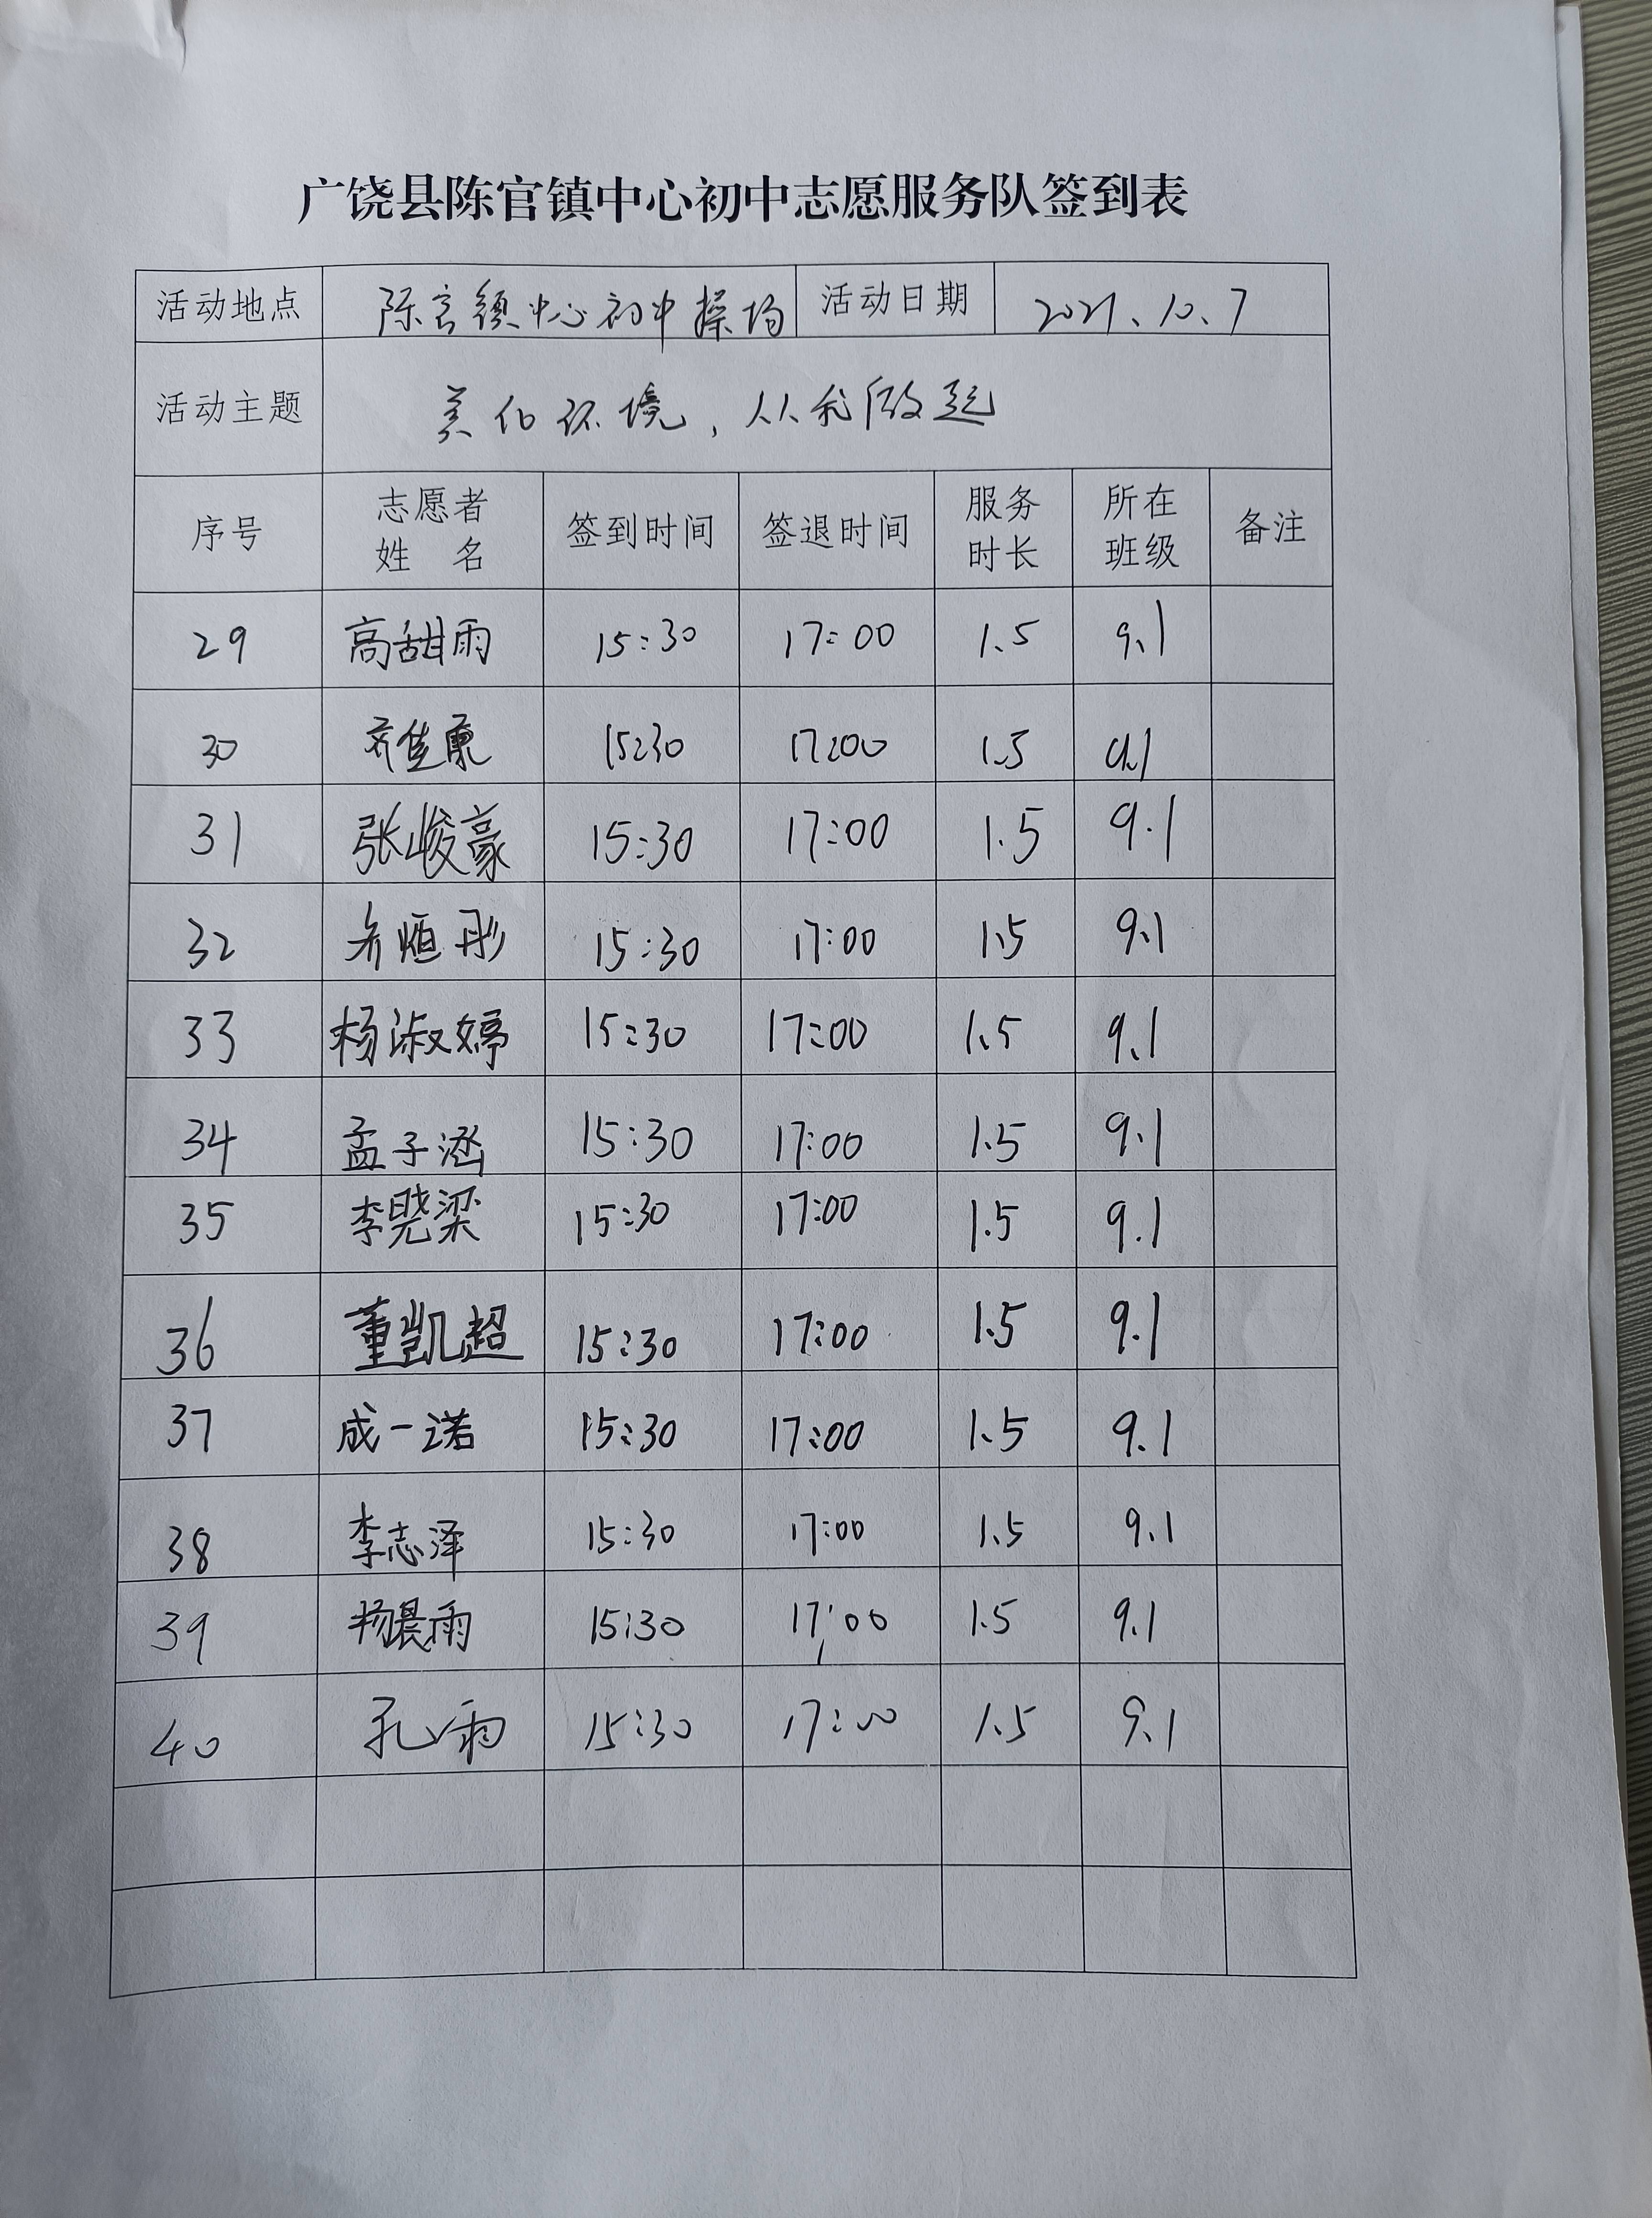 广饶县陈官镇中心初中志愿服务队签到表
活动地点 陈官镇中心初中操场 活动日期 2021.10.7
活动主题 美化环境，从我做起
序号 志愿者姓名 签到时间 签退时间 服务时长 所在班级 备注
29 高甜雨 15:30 17:00 1.5 9.1
30 齐佳康 15:30 17:00 1.5 9.1
31 张峻豪 15:30 17:00 1.5 9.1
32 15:30 17:00 1.5 9.1
33 杨淑婷 15:30 17:00 1.5 9.1
34 孟子涵 15:30 17:00 1.5 9.1
35 李晓梁 15:30 17:00 1.5 9.1
36 董凯超 15:30 17:00 1.5 9.1
37 成一诺 15:30 17:00 1.5 9.1
38 李志泽 15:30 17:00 1.5 9.1
39 杨晨雨 15:30 17:00 1.5 9.1
40 孔雨 15:30 17:00 1.5 9.1